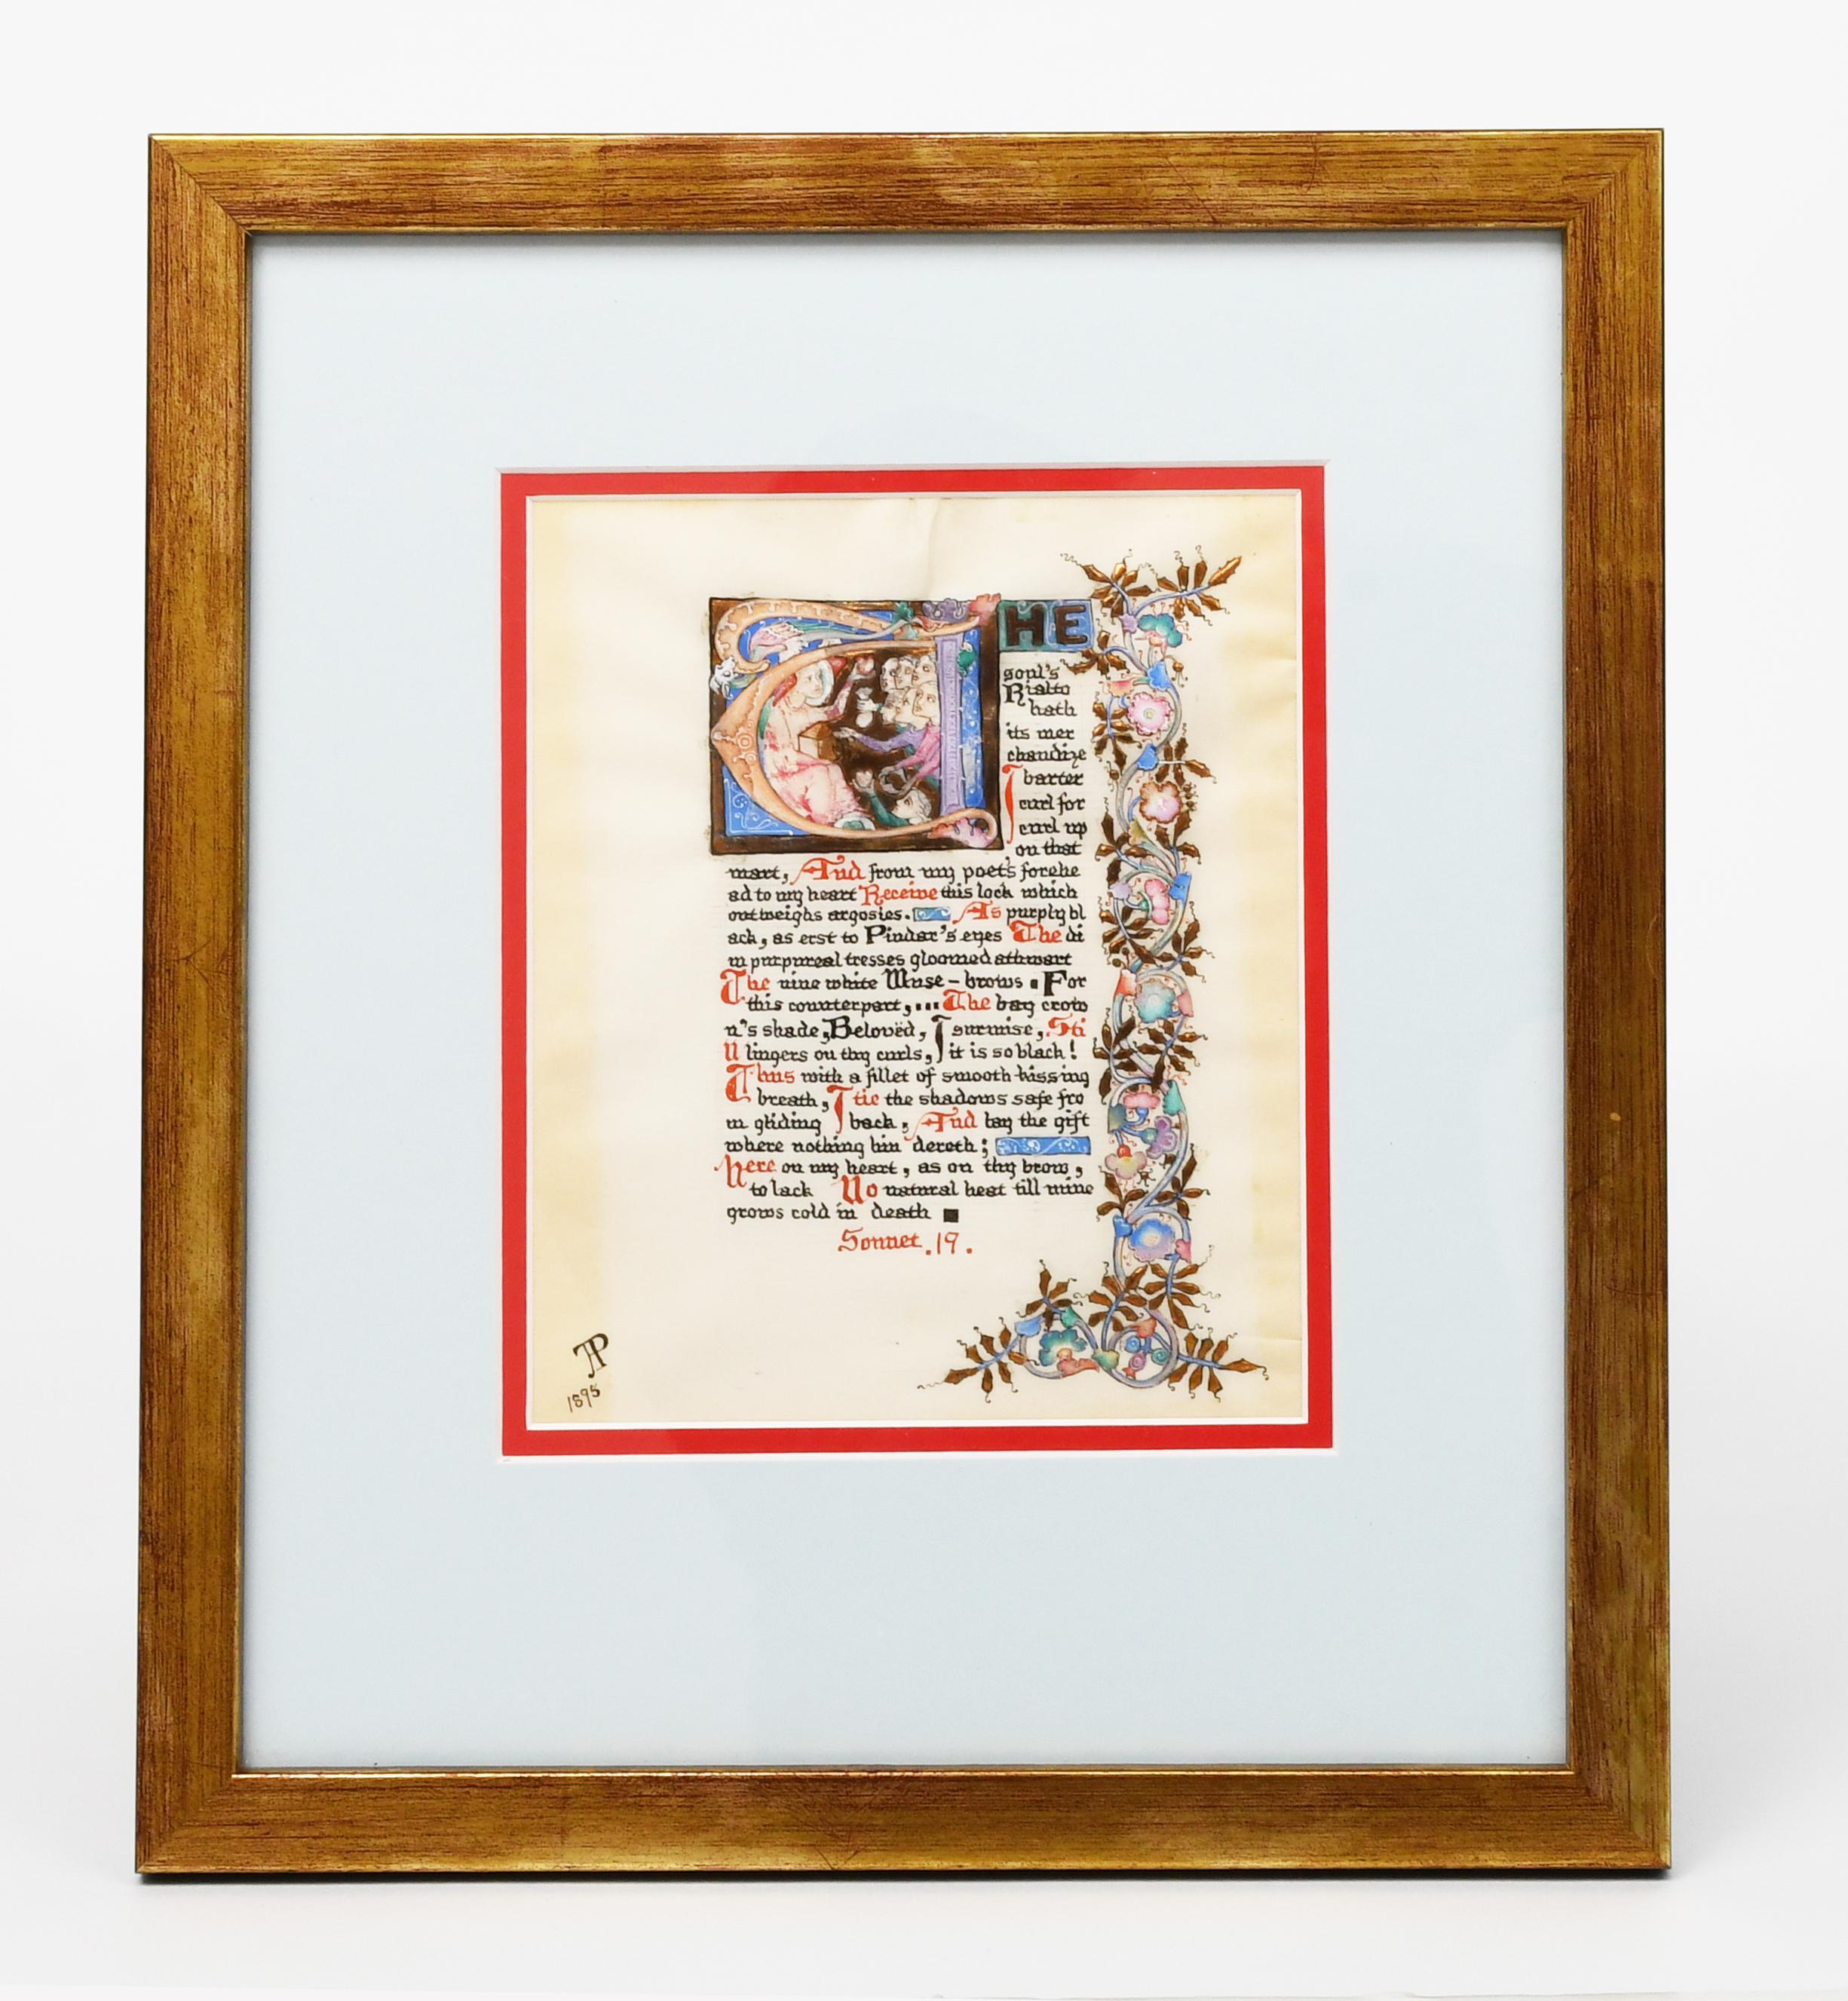 THE
soul's
Rialto
hath
its mer
chandize
I barter
curl for
curl up
on that
mart, And from my poet's forehe
ad to my heart Receive this lock which
outweighs argosies. As purply bl
ack, as erst to Pindar's eyes The di
m purpureal tresses gloomed athwart
The nine white Muse-brows. For
this counterpart,... The bay crow
n's shade, Belovëd, I surmise, Sti
ll lingers on thy curls, it is so black!
Thus with a fillet of smooth-kissing
breath, I tie the shadows safe fro
m gliding back, And lay the gift
where nothing hin dereth;
Here on my heart, as on thy brow,
to lack No natural heat till mine
grows cold in death
Sonnet.19.
TP
1895